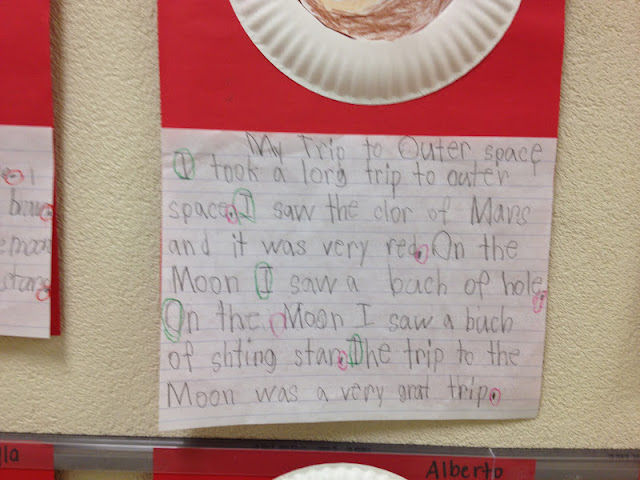 My Trip to Outer space
I took a long trip to outer
space. I saw the clor of Mars
and it was very red. On the
Moon I saw a buch of hole.
On the Moon I saw a buch
of shting star. The trip to the
Moon was a very grat trip.
Alberto